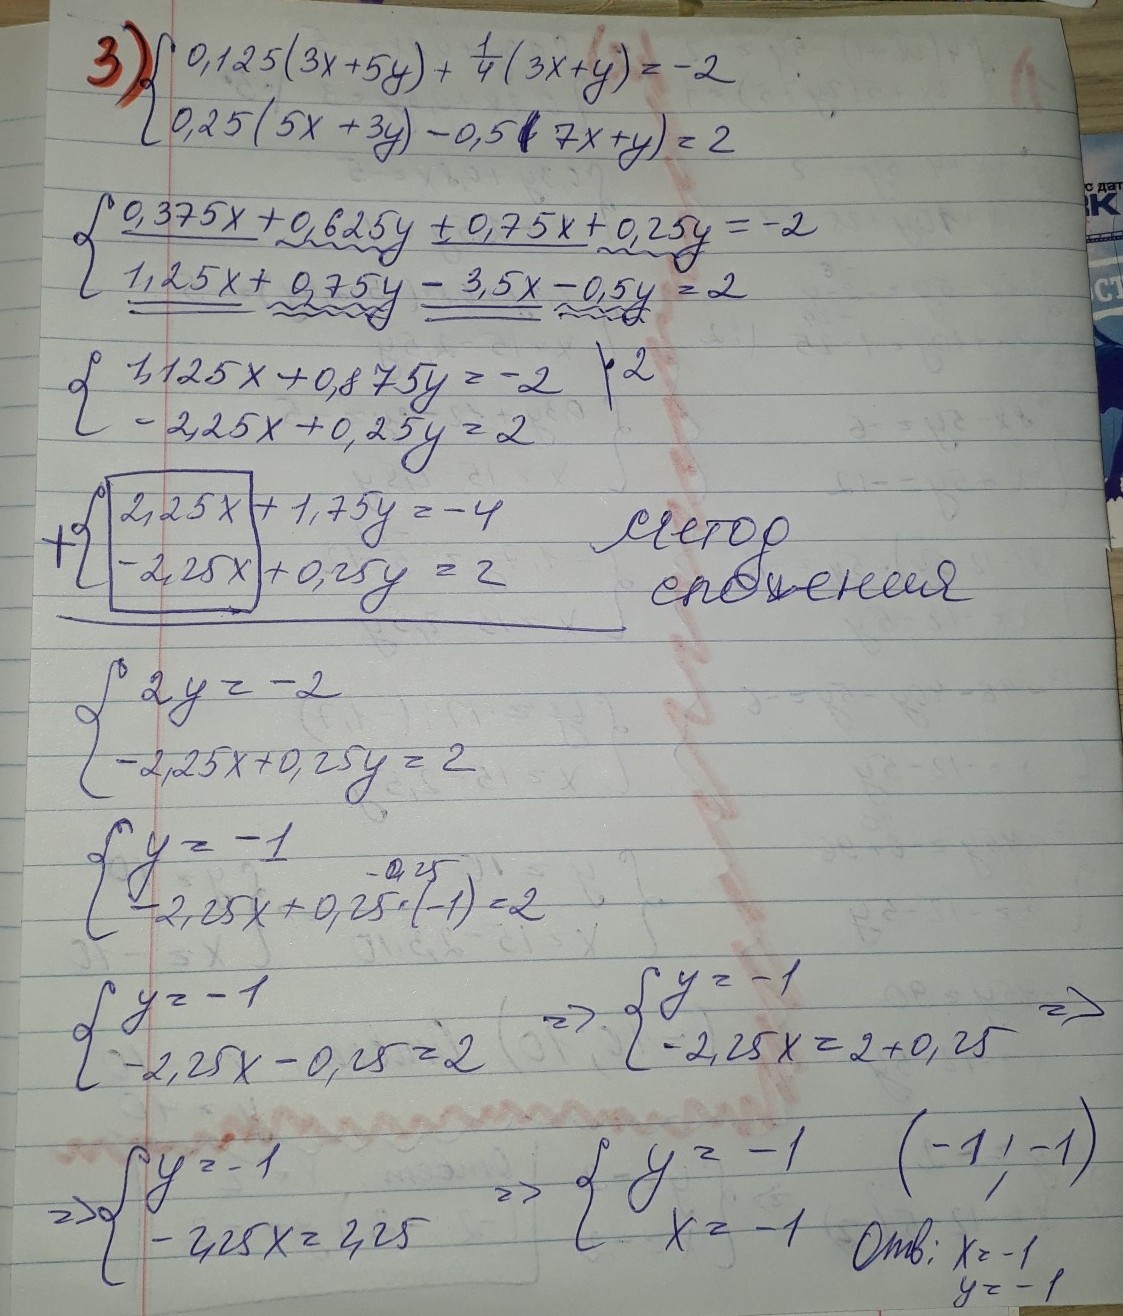 3) { 0,125(3x+5y) + 1/4 (3x+y) = -2
0,25(5x+3y) - 0,5(7x+y) = 2
{ 0,375x + 0,625y + 0,75x + 0,25y = -2
1,25x + 0,75y - 3,5x - 0,5y = 2
{ 1,125x + 0,875y = -2 | · 2
-2,25x + 0,25y = 2
+ { 2,25x + 1,75y = -4
-2,25x + 0,25y = 2
Метод
сложения
{ 2y = -2
-2,25x + 0,25y = 2
{ y = -1
-0,25
-2,25x + 0,25·(-1) = 2
{ y = -1
-2,25x - 0,25 = 2
=> { y = -1
-2,25x = 2 + 0,25 =>
=> { y = -1
-2,25x = 2,25
=> { y = -1
x = -1
(-1; -1)
Отв: x = -1
y = -1